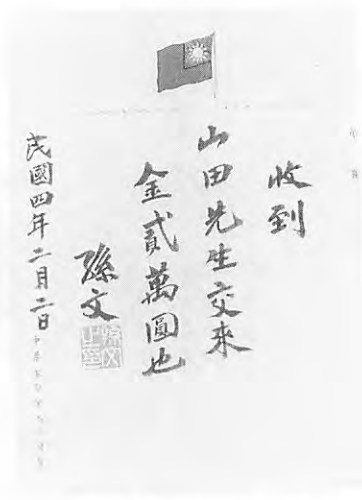 收到
山田先生交来
金貳萬圓也
孫文
民國四年二月二日